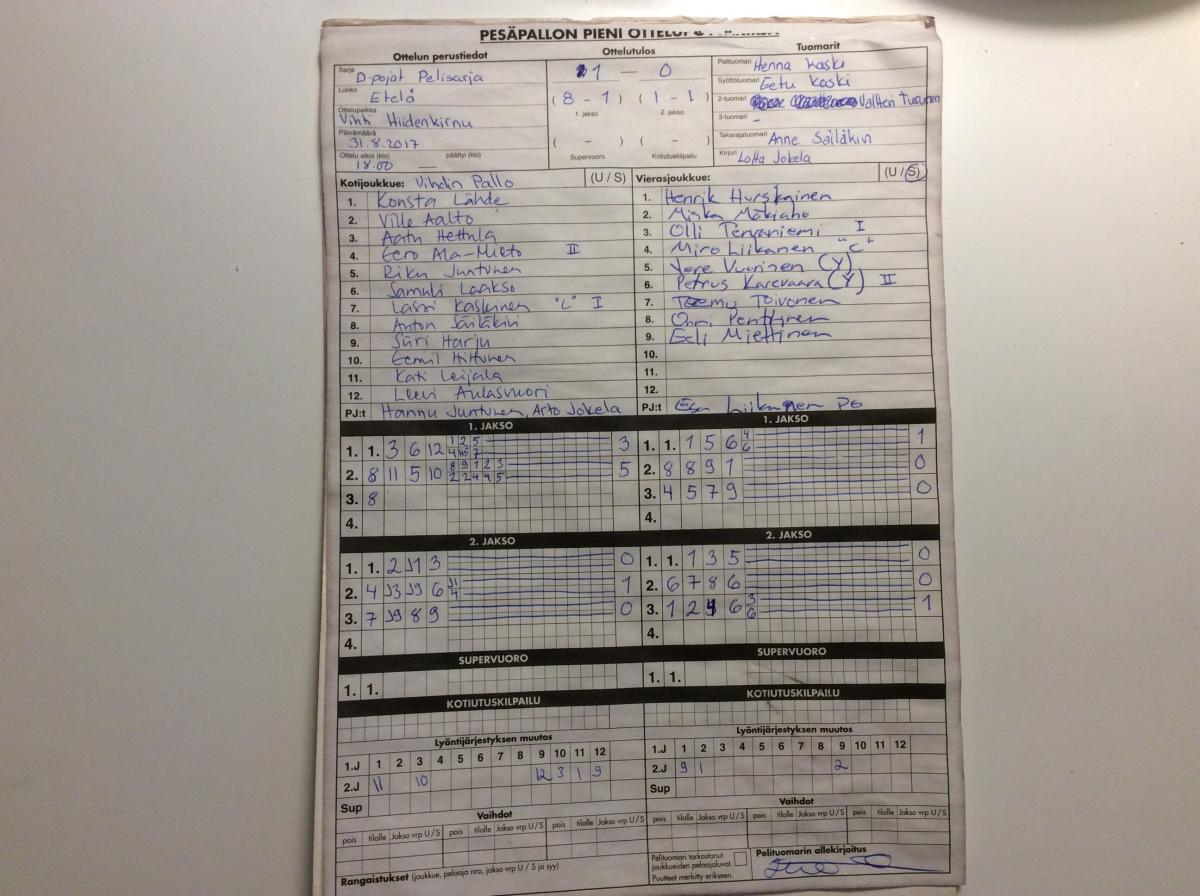 PESÄPALLON PIENI OTTELUPÖYTÄKIRJA
Ottelun perustiedot Ottelutulos Tuomarit
Sarja D-pojat Pelisarja
Lohko Etelä
Ottelupaikka Vihti Hiidenkirnu
Päivämäärä 31.8.2017
Ottelu alkoi (klo) päättyi (klo)
18.00 —
1 — 0
(8 - 1) (1 - 1)
1. jakso 2. jakso
( - ) ( - )
Supervuoro Kotiutuskilpailu
Pelituomari Henna Kaski
Syöttötuomari Eetu Kaski
2-tuomari Valtteri Turunen
3-tuomari -
Takarajatuomari Anne Säiläkivi
Kirjuri Lotta Jokela
Kotijoukkue: Vihdin Pallo (U / S)
1. Konsta Lähde
2. Ville Aalto
3. Aatu Hettula
4. Eero Ala-Mieto II
5. Riku Juntunen
6. Samuli Laakso
7. Lassi Kaskinen "C" I
8. Anton Säiläkivi
9. Siiri Harju
10. Eemil Hiltunen
11. Kati Leijala
12. Leevi Aulasvuori
PJ:t Hannu Juntunen, Arto Jokela
Vierasjoukkue: (U / S)
1. Henrik Hurskainen
2. Miska Mäkiaho
3. Olli Tervaniemi I
4. Miro Liikanen "C"
5. Vere Vuorinen (Y)
6. Petrus Karevaara (Y) II
7. Teemu Toivonen
8. Onni Penttinen
9. Eeli Miettinen
10.
11.
12.
PJ:t Liikanen PG
1. JAKSO
1. 1. 3 6 12 1 2 5 3
4 7
2. 8 11 5 10 8 9 1 2 3 5
2 2 4 4 5
3. 8
4.
1. JAKSO
1. 1. 1 5 6 4 1
6
2. 8 8 9 1 0
3. 4 5 7 9 0
4.
2. JAKSO
1. 1. 2 11 3 0
2. 4 3 9 6 11 1
4
3. 7 9 8 9 0
4.
2. JAKSO
1. 1. 1 3 5 0
2. 6 7 8 6 0
3. 1 2 4 6 3 1
6
4.
SUPERVUORO
1. 1.
SUPERVUORO
1. 1.
KOTIUTUSKILPAILU
KOTIUTUSKILPAILU
Lyöntijärjestyksen muutos
1.J 1 2 3 4 5 6 7 8 9 10 11 12
2.J 11 10 12 3 1 9
Sup
Lyöntijärjestyksen muutos
1.J 1 2 3 4 5 6 7 8 9 10 11 12
2.J 9 1 2
Sup
Vaihdot
pois tilalle Jakso vrp U/S pois tilalle Jakso vrp U/S pois tilalle Jakso vrp U/S
Vaihdot
pois tilalle Jakso vrp U/S pois tilalle Jakso vrp U/S pois tilalle Jakso vrp U/S
Rangaistukset (joukkue, pelaaja nro, jakso vrp U / S ja syy)
Pelituomari tarkastanut
joukkueiden pelaajaluvat.
Puutteet merkitty erikseen.
Pelituomarin allekirjoitus